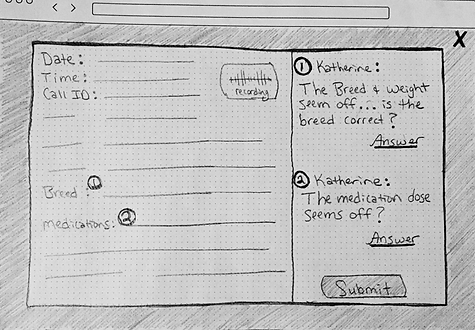 X
Date:
Time:
Call ID:
recording
Breed: 1
medications: 2
1 Katherine:
The Breed & weight
seem off... is the
breed correct?
Answer
2 Katherine:
The medication dose
seems off?
Answer
Submit